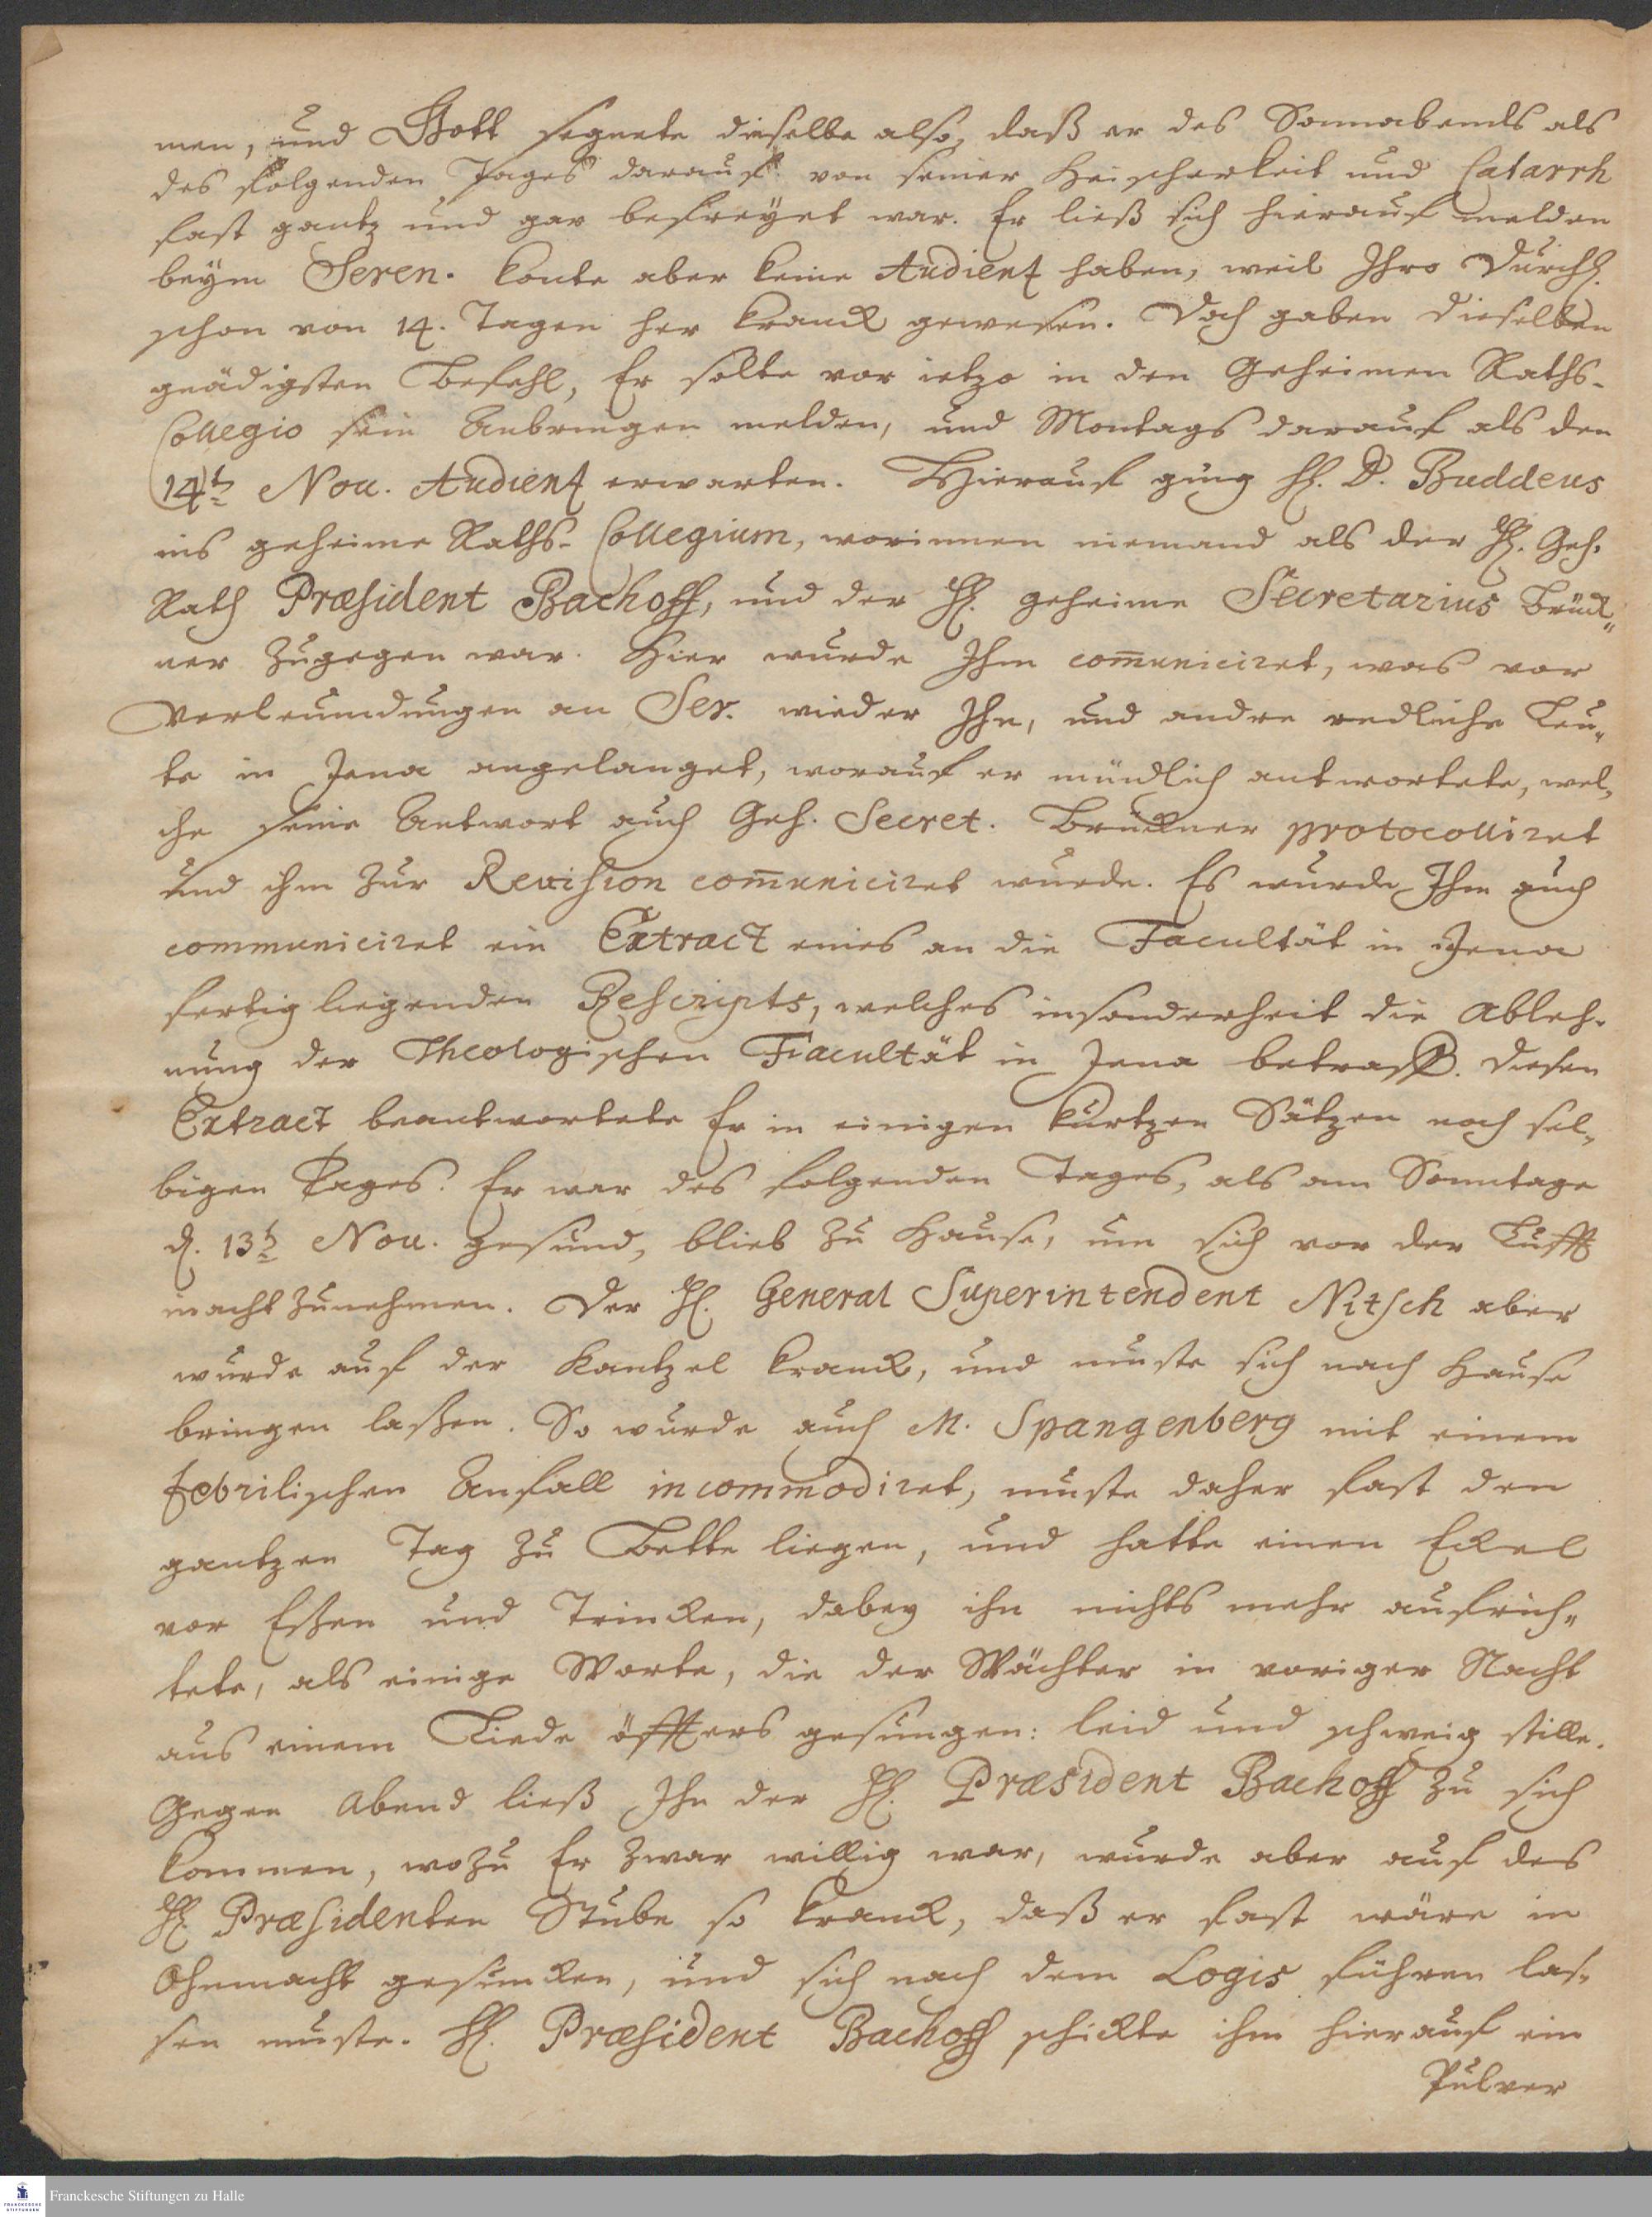 men, und Gott segnete dieselbe also, daß er des Sonnabends als
des folgenden Tages darauf von seiner Heischerkeit und Catarrh
fast gantz und gar befreyet war. Er ließ sich hierauf melden
beym Seren. konte aber keine Audientz haben, weil Ihro Durchl.
schon von 14. Tagen her kranck gewesen. Doch gaben dieselben
gnädigsten Befehl, Er solte vor ietzo in den Geheimen Raths-
Collegio sein Anbringen melden, und Montags darauf als den
14t. Nov. Audientz erwarten. Hierauf ging H. D. Buddeus
ins geheime Raths-Collegium, worinnen niemand als der H. Geh.
Rath Præsident Bachoff, und der H. geheime Secretarius Brück„
ner zugegen war. Hier wurde Ihm com̄uniciret, was vor
Verleumdungen an Ser. wieder Ihn, und andre redliche Leu„
te in Jena angelanget, worauf er mündlich antwortete, wel„
che seine Antwort auch Geh. Secret. Brückner protocolliret
und ihm zur Revision com̄uniciret wurde. Es wurde Ihm auch
communiciret ein Extract eines an die Facultät in Jena
fertig liegenden Rescripts, welches insonderheit die Ableh-
nung der Theologischen Facultät in Jena betraff. Diesen
Extract beantwortete Er in einigen kurtzen Sätzen noch sel„
bigen Tages. Er war des folgenden Tages, als am Sonntage
d. 13t. Nov. gesund, blieb zu Hause, um sich vor der Lufft
in acht zunehmen. Der H. General Superintendent Nitsch aber
wurde auf der Kantzel kranck, und muste sich nach Hause
bringen laßen. So wurde auch M. Spangenberg mit einem
febrilischen Anfall incommodiret, muste daher fast den
gantzen Tag zu Bette liegen, und hatte einen Eckel
vor Eßen und Trincken, dabey ihn nichts mehr aufrich„
tete, als einige Worte, die der Wächter in voriger Nacht
aus einem Liede öffters gesungen: leid und schweig stille.
Gegen Abend ließ Ihn der H. Præsident Bachoff zu sich
kommen, wozu Er zwar willig war, wurde aber auf des
H. Præsidenten Stube so kranck, daß er fast wäre in
Ohnmacht gesuncken, und sich nach dem Logis führen las-
sen muste. H. Præsident Bachoff schickte ihm hierauf ein
Pulver
Franckesche Stiftungen zu Halle